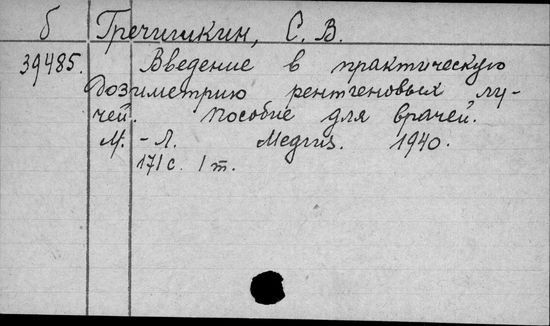 б Гречишкин, С. В.
39485. Введение в практическую
дозиметрию рентгеновых лу-
чей. Пособие для врачей.
М. - Л. Медгиз. 1940.
171 с. 1 т.